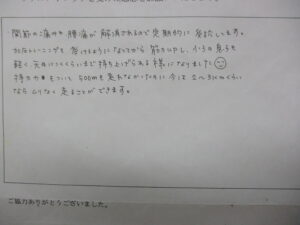 関節の痛みや、腰痛が解消されるので定期的に参加してます。
加圧トレーニングも受けるようになってから筋力UPし、小5の息子も
軽く天井につくくらいまで持ち上げられる様になりました
持久力もついて500mも走れなかったのに今は2〜3kmくらい
なら ムリなく 走ることができます。
ご協力ありがとうございました。